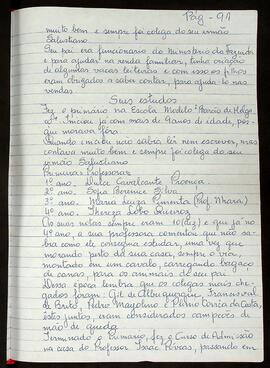 Pag - 91
muito bem e sempre foi colega do seu irmão
Salustiano
Seu pai era funcionário do Ministério da Fazenda
e para ajudar na renda familiar, tinha criação
de algumas vacas leiteiras e com isso os filhos
eram obrigados a saber contar, para ajudá-lo nas
vendas
Seus estudos
Fez o primário na Escola Modelo
Iniciou já com mais de 9 anos de idade, por
que morava fora
Quando iniciou não sabia ler nem escrever, mas
contava muito bem e sempre foi colega do seu
irmão Salustiano
Primeiras Professoras
1º ano. Dulce Cavalcante Proença
2º ano. Sofia Berenice Silva
3º ano. Maria Luiza Pimenta (Prof. Mara)
4º ano. Thereza Lobo Queiroz
As suas notas sempre eram 10 (dez) e que já no
4º ano, a sua professora comentou que não sa-
bia como ele conseguia estudar, uma vez que
morando perto da sua casa, sempre o via,
montado em um cavalo, carregando bagaço
de canas, para os animais do seu pai
Dessa época lembra que os colegas mais che-
gados foram: Gil de Albuquerque,
de Brito, Pedro e Plínio Corrêa da Costa,
êstes juntos, eram considerados campeões de
mão de ajuda
Terminado o Primário, fez o Curso de Admissão
na casa do Professor Isaac Póvoas, passando em